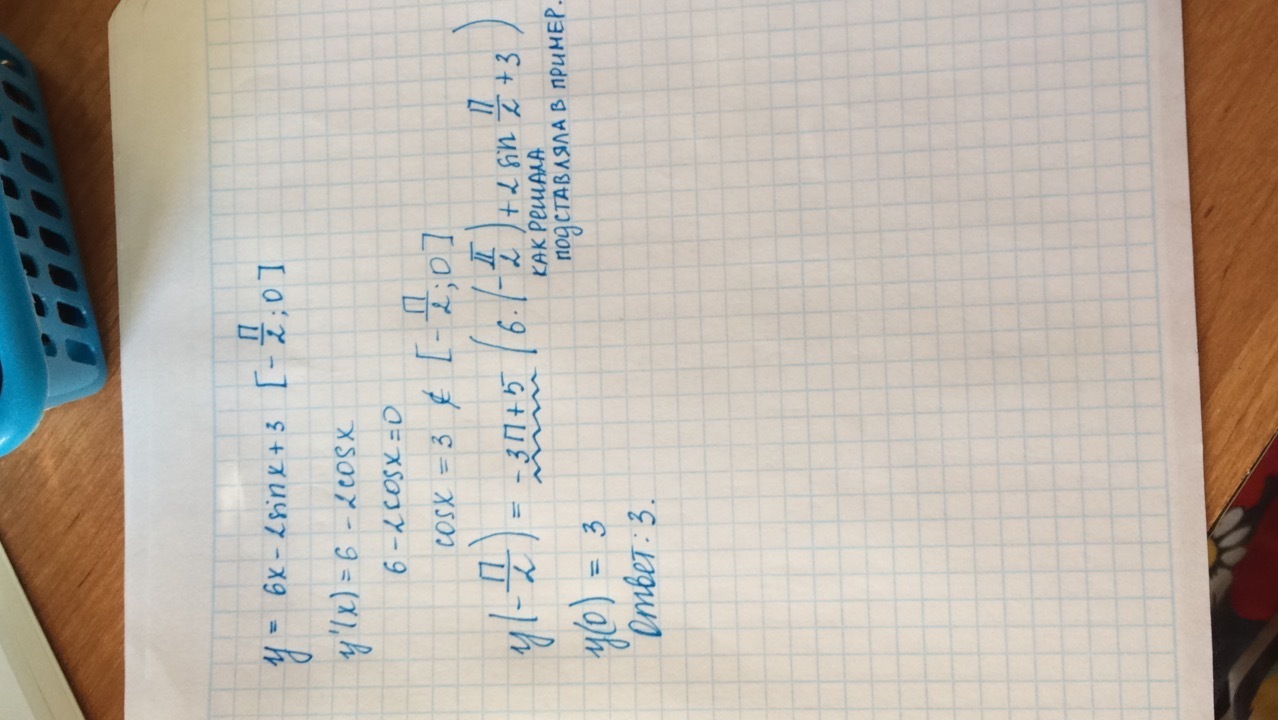 y = 6x - 2sinx + 3 [-π/2; 0]
y'(x) = 6 - 2cosx
6 - 2cosx = 0
cosx = 3 ∉ [-π/2; 0]
y(-π/2) = -3π + 5 (6·(-π/2) + 2sin π/2 + 3)
КАК РЕШАЛА
ПОДСТАВЛЯЛА В ПРИМЕР.
y(0) = 3
Ответ: 3.